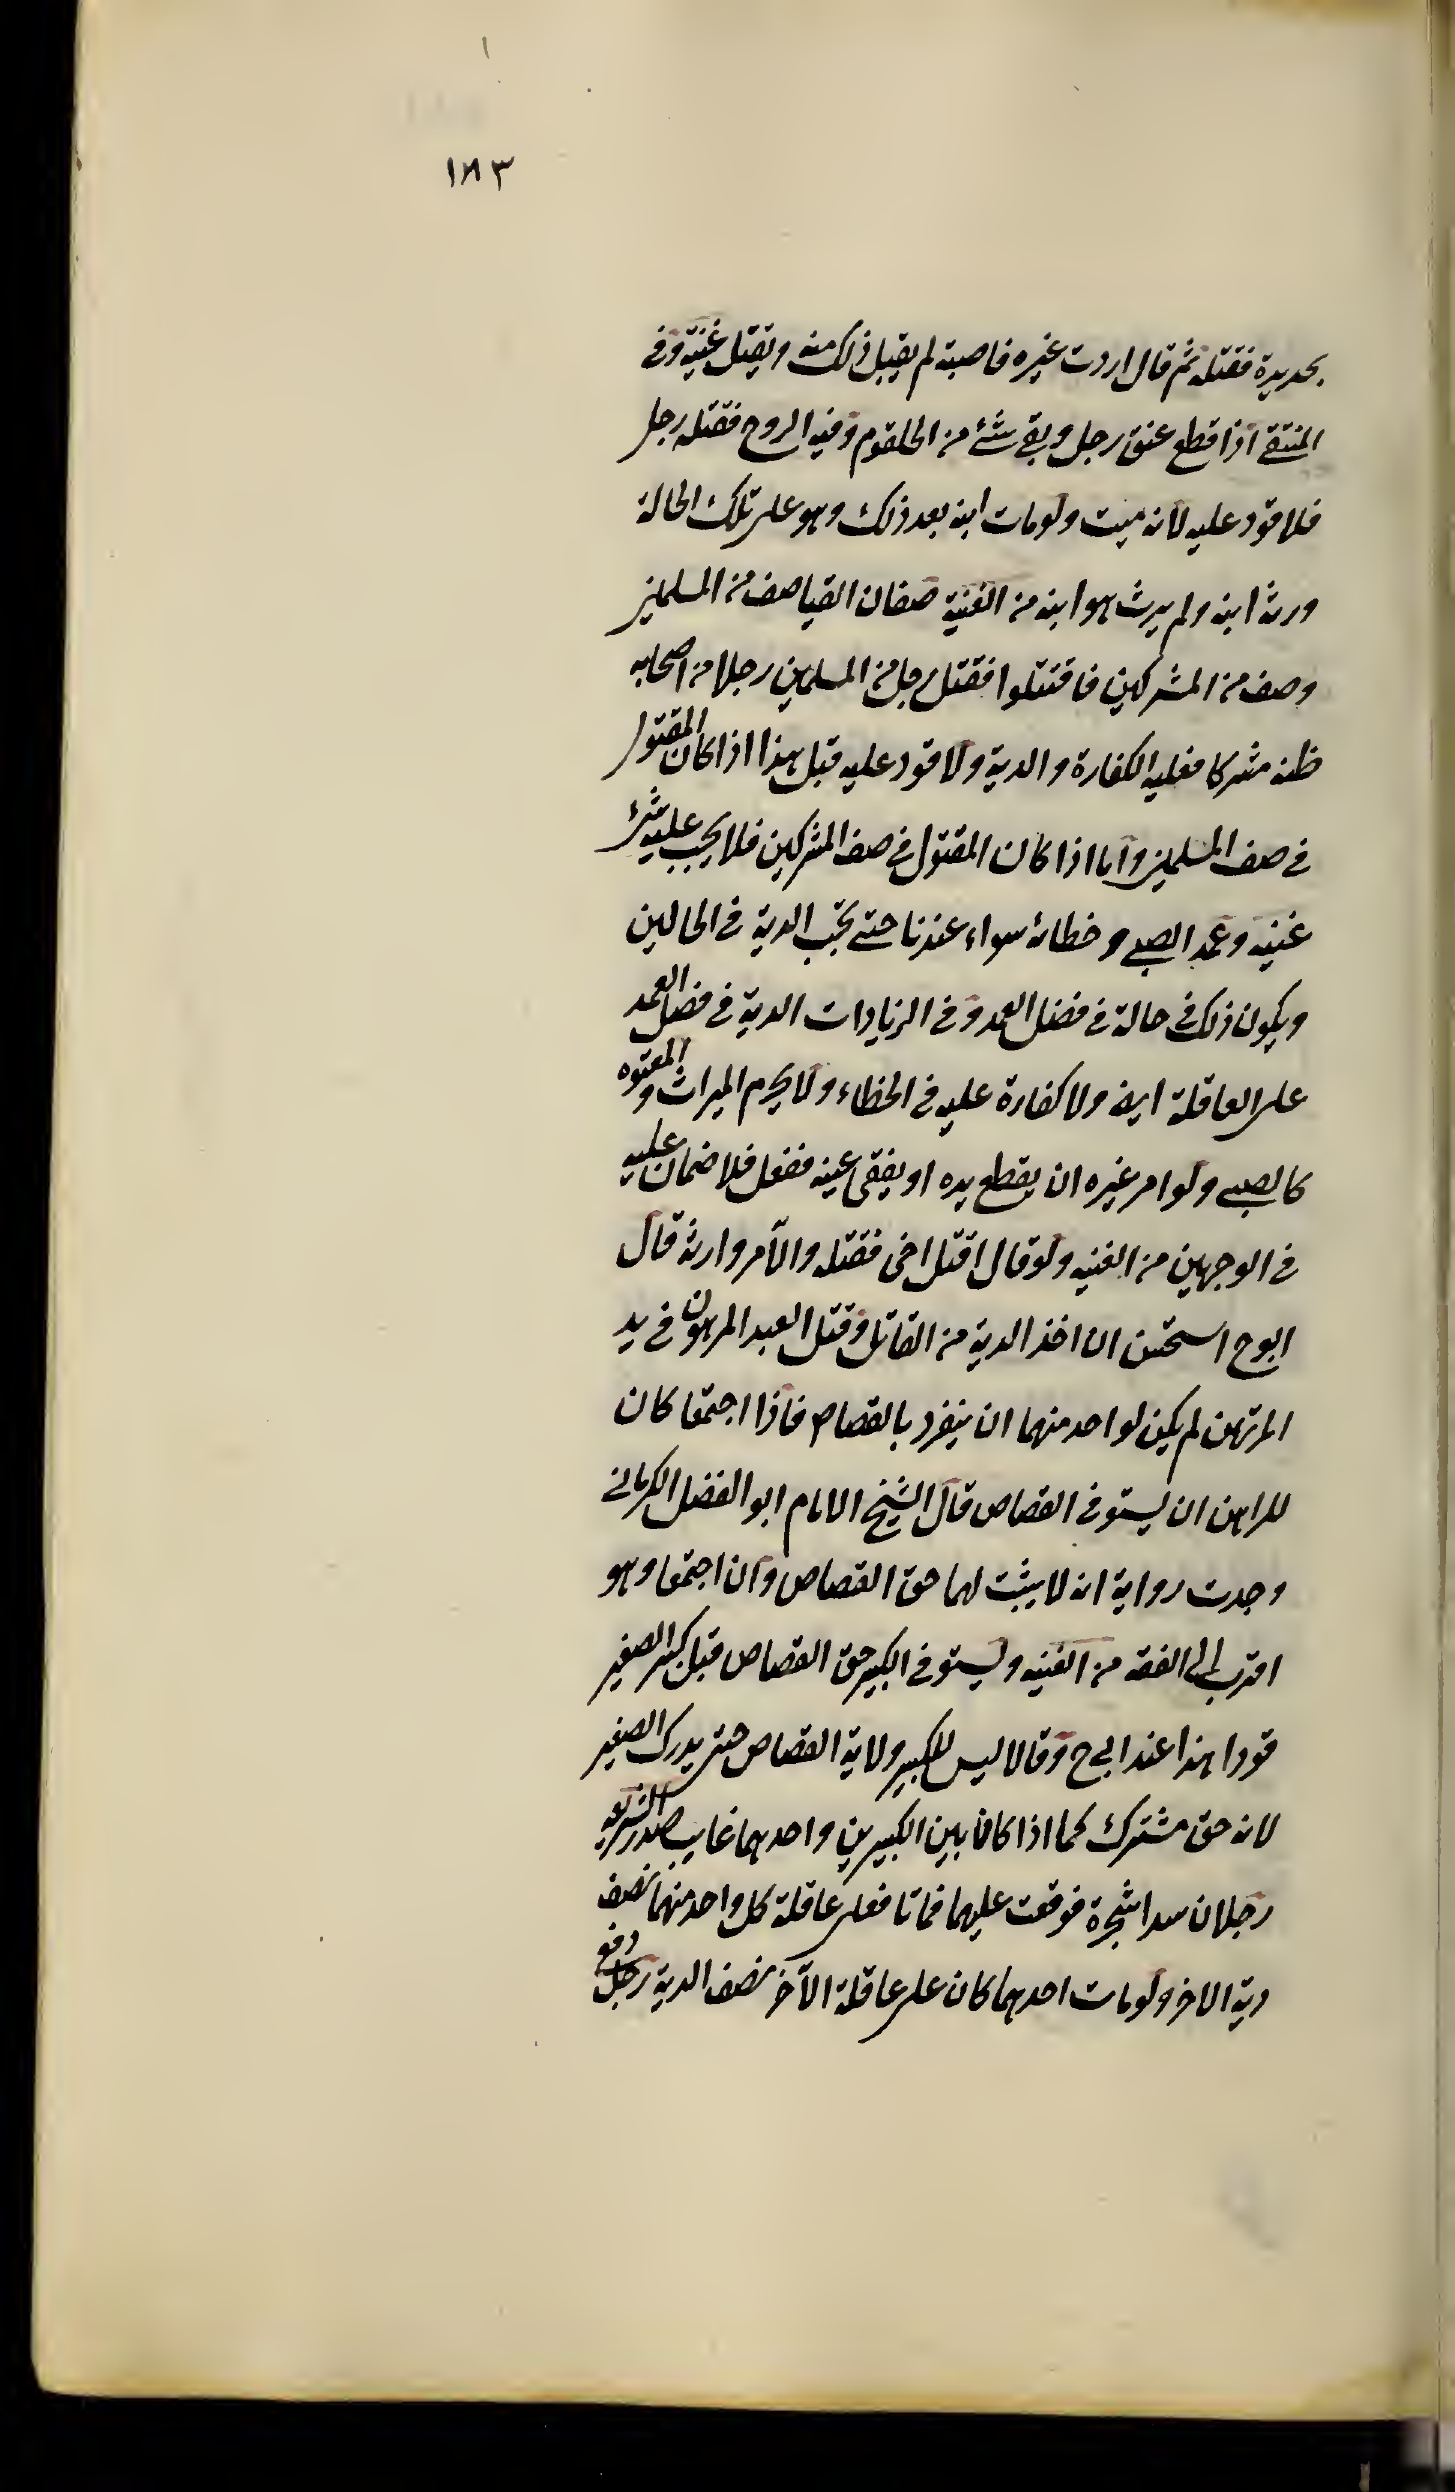 ١٨٣
بحديدة فقتله ثم قال اردت غيره فاصبته لم يقبل ذلك منه ويقتل غنية وفى
المنتقى اذا قطع عنق رجل وبقى شئ من الحلقوم وفيه الروح فقتله رجل
فلا قود عليه لانه ميت ولو مات ابنه بعد ذلك وهو على تلك الحالة
ورثه ابنه ولم يرث هو ابنه من الغنية صفان التقيا صف من المسلمين
وصف من المشركين فاقتتلوا فقتل رجل من المسلمين رجلا من اصحابه
ظنه مشركا فعليه الكفارة والدية ولا قود عليه قبل هذا اذا كان المقتول
فى صف المسلمين واما اذا كان المقتول فى صف المشركين فلا يجب عليه شئ
غنيه وعمد الصبى وخطائه سواء عندنا حتى تجب الدية فى الحالين
ويكون ذلك فى حالة فى فضل العمد وفى الزيادات الدية فى فضل العمد
على العاقلة ايضا ولا كفارة عليه فى الخطاء ولا يحرم الميراث والمعتوه
كالصبى ولو امر غيره ان يقطع يده او يفقى عينه ففعل فلا ضمان عليه
فى الوجهين من الغنيه ولو قال اقتل اخى فقتله والآمر وارثه قال
ابو ح استحسن ان اخذ الدية من القاتل وقتل العبد المرهون فى يد
المرتهن لم يكن لواحد منهما ان ينفرد بالقصاص فاذا اجتمعا كان
للراهن ان يستوفى القصاص قال الشيخ الامام ابو الفضل الكرمانى
وجدت رواية انه لا يثبت لهما حق القصاص وان اجتمعا وهو
اقرب الى الفقه من الغنيه ويستوفى الكبير حق القصاص قبل كبر الصغير
قودا هذا عند ابى ح وقالا ليس للكبير ولاية القصاص حتى يدرك الصغير
لانه حق مشترك كما اذا كانا بين الكبيرين واحدهما غايب صدر الشريعه
رجلان مدا شجرة فوقعت عليهما فماتا فعلى عاقلة كل واحد منهما نصف
دية الاخر ولو مات احدهما كان على عاقلة الآخر نصف الدية رجل دفع